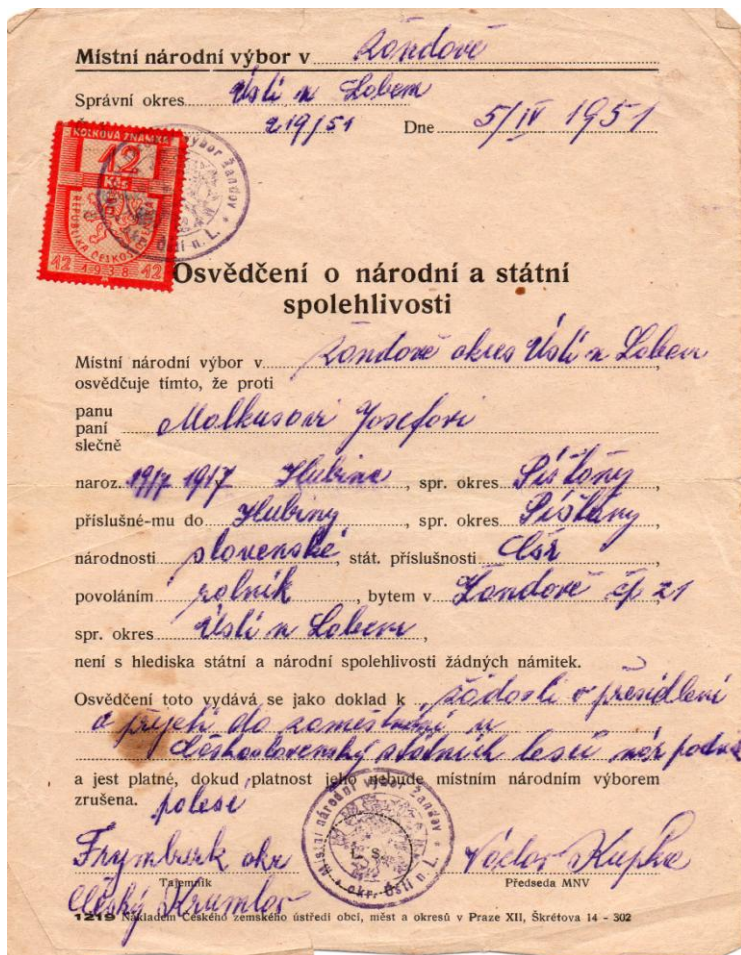 Místní národní výbor v Žandově
Správní okres Ústí n Labem
219/51 Dne 5/IV 1951
KOLKOVÁ ZNÁMKA
12
Kčs
REPUBLIKA ČESKOSLOVENSKÁ
12 1938 12
výbor Žandov * Ústí n. L.
Osvědčení o národní a státní
spolehlivosti
Místní národní výbor v Žandově okres Ústí n Labem
osvědčuje tímto, že proti
panu
paní Malkusovi Josefovi
slečně
naroz. 19/7 1917 v Hlubina, spr. okres Píšťany,
příslušné-mu do Hlubiny, spr. okres Píšťany,
národnosti slovenské, stát. příslušnosti Čsr
povoláním rolník, bytem v Žandově čp 21
spr. okres Ústí n Labem,
není s hlediska státní a národní spolehlivosti žádných námitek.
Osvědčení toto vydává se jako doklad k žádosti o přesídlení
a přijetí do zaměstnání u
Československý státních lesů nár podnik
a jest platné, dokud platnost jeho nebude místním národním výborem
zrušena. polesí
Místní národní výbor Žandov * okr. Ústí n. L. *
Frymburk okr Václav Kupka
Tajemník Předseda MNV
Český Krumlov
1219 Nákladem Českého zemského ústředí obcí, měst a okresů v Praze XII, Škrétova 14 - 302